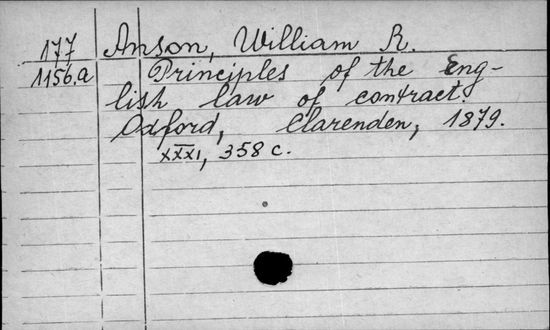 177 Anson, William R.
1156.a Principles of the Eng-
lish law of contract.
Oxford, Clarenden, 1879.
XXXI, 358 c.